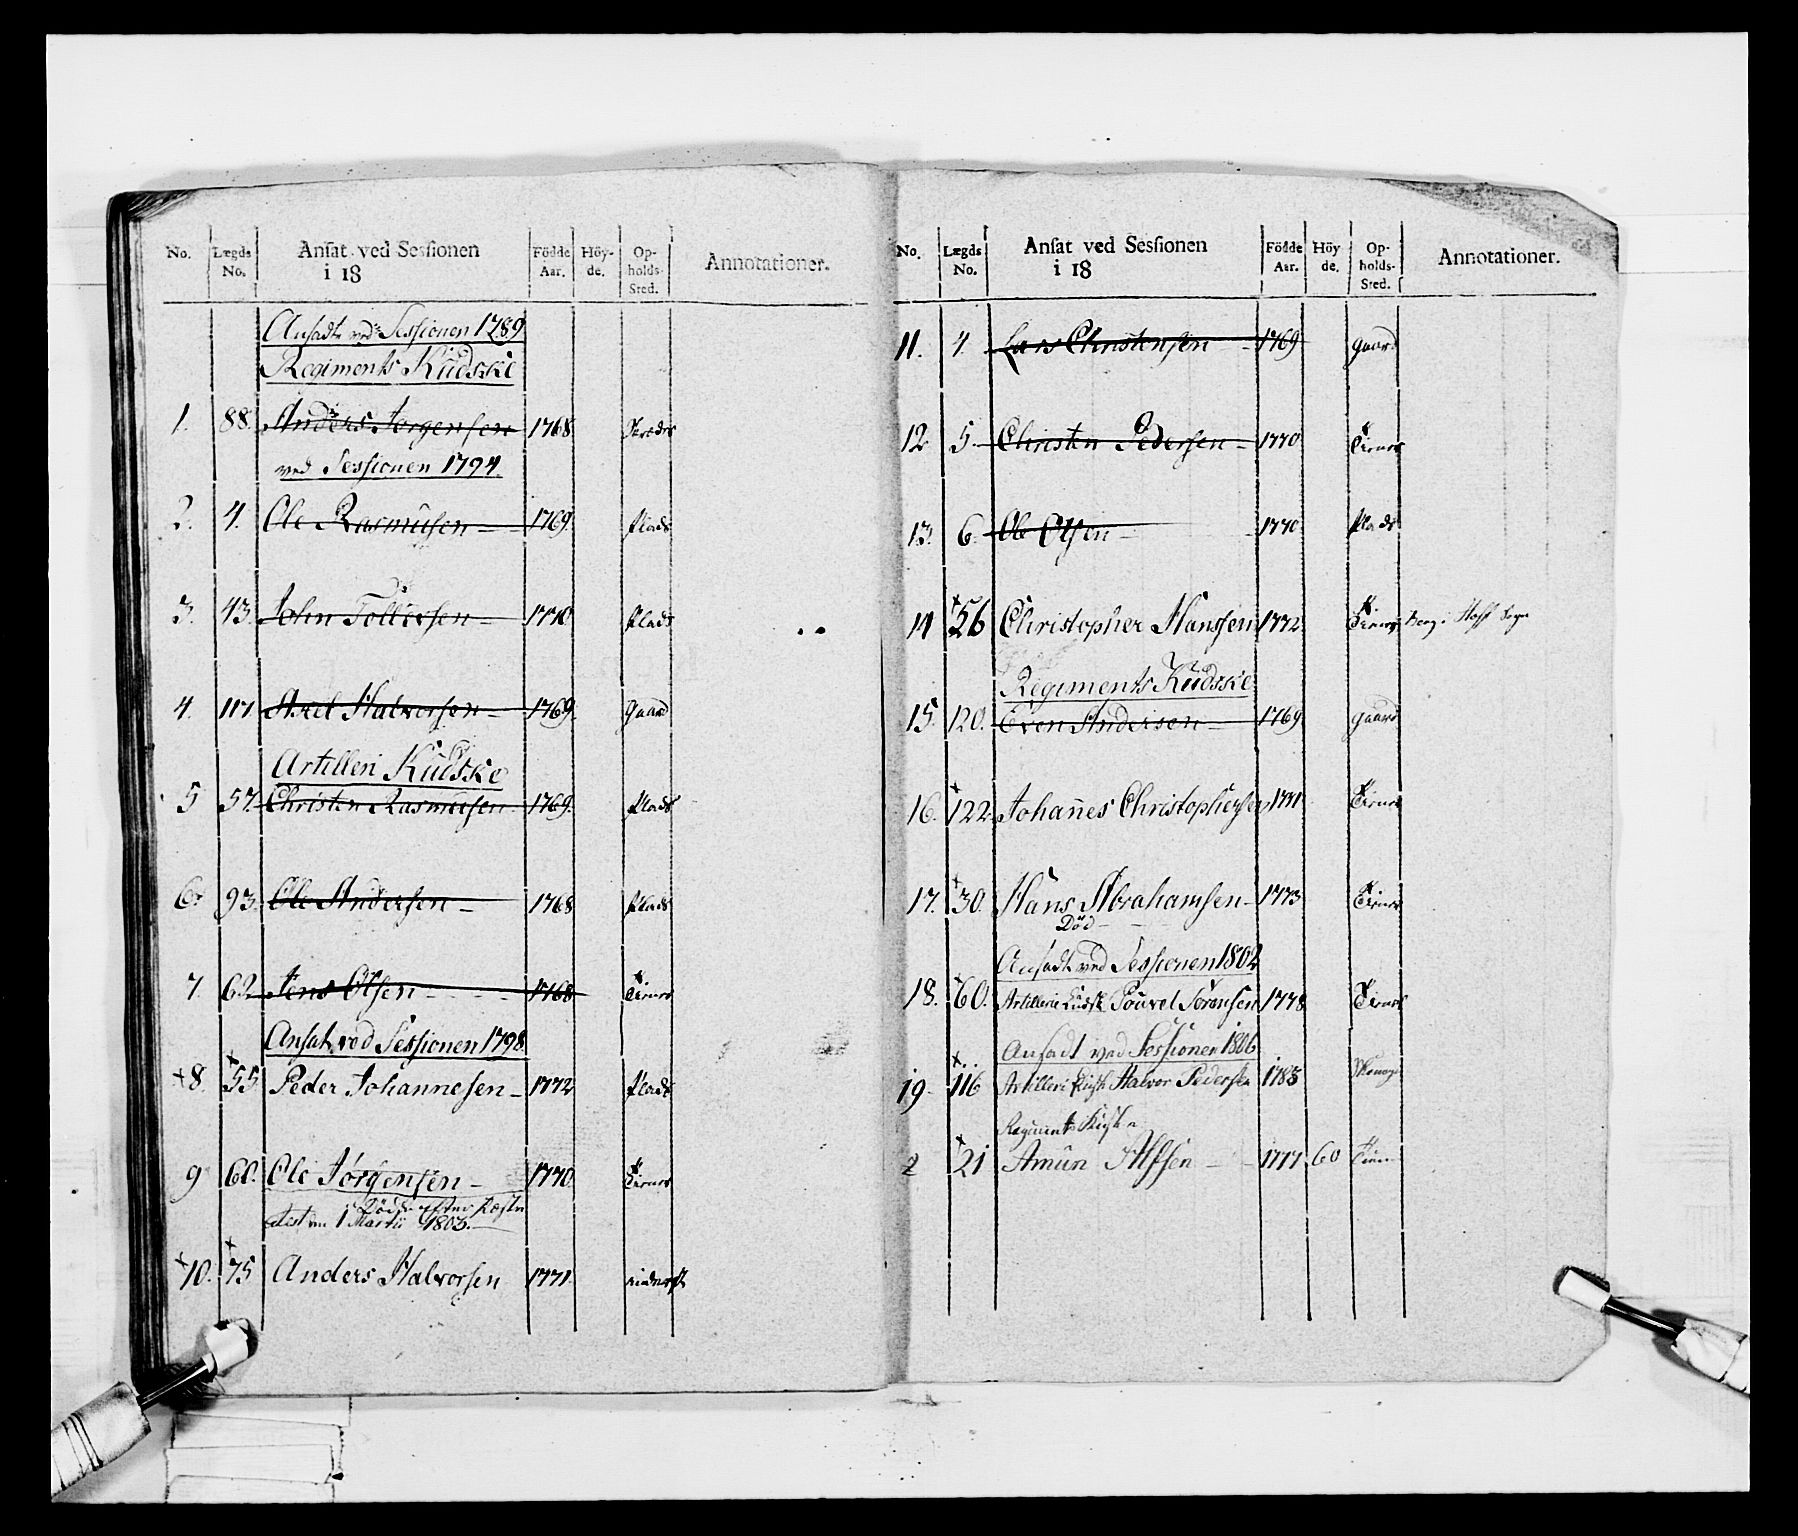 No. Lægds No. Ansat ved Sessionen i 18 Födde Aar. Höy-de. Op-holds-Sted. Annotationer.
Ansadt ved Sessionen 1789
Regiments Kudske
1. 88. Anders Jørgensen 1768
ved Sessionen 1794.
2. 4. Ole Rasmusen 1769. Plads
3. 43. John Tollefsen 1770 Plads
4. 117. Axel Halvorsen 1769. Gaard
Artilleri Kudske
5 57. Christen Rasmusen 1769. Plads
6. 93. Ole Andersen 1768 Plads
7. 62 Jens Olsen 1768 Tienes
Ansat ved Sessionen 1798.
8. 55. Peder Johannesen 1772 Plads
9 60. Ole Jørgensen 1770 Tienes
Død efter
Attest den 1 Martii 1803.
10. 75 Anders Halvorsen 1771.
No. Lægds No. Ansat ved Sessionen i 18 Födde Aar. Höy de. Op-holds-Sted. Annotationer.
11. 4. Lars Christensen 1769 Gaard
12 5. Christen Pedersen 1770 Tienes
13. 6. Ole Olsen 1770 Plads
14 56 Christopher Hanssen 1772 Tienes
Regiments Kudske
15. 120. Even Andersen 1769 Gaard
16. 122. Johannes Christophersen 1771 Tienes
17. 30. Hans Abrahamsen 1773 Tienes
Död
Ansadt ved Sessionen 1802
18. 60. Artillerie Kudsk Pouvel Sørensen 1778 Tienes
Ansadt ved Sessionen 1806
19. 116 Artilleri Kusk Halvor Pedersen 1783
Regiments Kuske
2 21 Amun Alfsen 1777 60 Tiene